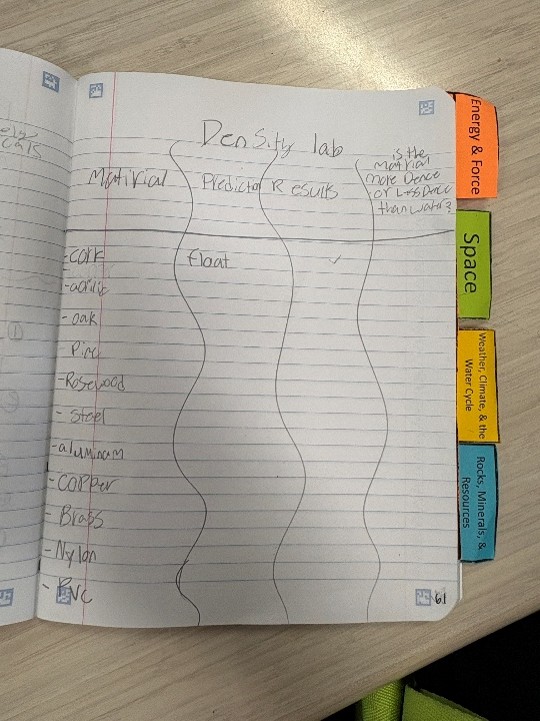 Density lab
Matirial
Predicton
Results
is the
matrial
more Dence
or Less Dence
than water?
-Cork
Float
✓
-acrilic
- oak
Pine
-Rosewood
- Steel
-aluminam
-Copper
- Brass
-Nylon
- PVC
61
Energy & Force
Space
Weather, Climate, & the
Water Cycle
Rocks, Minerals, &
Resources